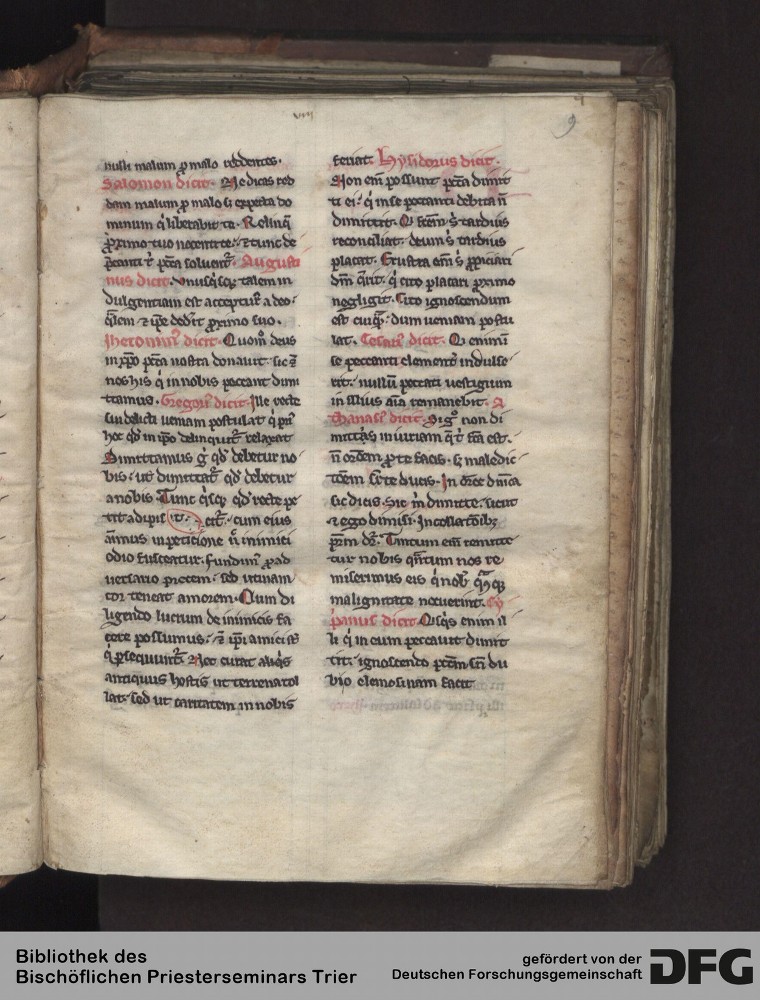 viii
9
nulli malum p malo reddentes.
Salomon dicit. Ne dicas red
dam malum p malo s; expecta do
minum q̇ liberabit te. Relinq̄
proximo tuo nocenti te. ⁊ tunc de
p̄canti t̕ pctā soluent᷑. Augusti
nus dicit. vnusq̇sq; talem in
dulgentiam est acceptur᷒ a deo.
q̄lem ⁊ ip̄e dederit proximo suo.
Iheronim᷒ dicit. Quom̊ deus
in xp̄o pctā nostra donauit. sic ⁊
nos his q̇ in nobis peccant dimi
ttamus. Gregori᷒ dicit. Ille recte
sui delicti ueniam postulat q̇ p̕us
hoc qd̕ in ip̄o delinquit᷑ relaxat
Dimittamus g̊ qd̕ debetur no
bis. ut dimittat᷑ qd̕ debetur
a nobis. Tunc q̇sq; qd̕ recte pe
tit adipiscit᷑. cum eius
aīmus in peticione n̄ inimici
odio fuscatur. fundim᷒ p ad
uersario precem. sed utinam
cor teneat amorem. Cum di
ligendo lucrum de inimicis fa
cere possumus. ⁊ ip̄i amici s̄t
q̇ persequunt᷑. Nec curat aliq̇s
antiquus hostis ut terrena tol
lat. sed ut caritatem in nobis
feriat. Hysidorus dicit.
Non em̄ possunt pctā dimit
ti ei. q̇ in se peccanti debita n̄
dimittit.
reconciliat. deum s̕ tardius
placat. frustra em̄ s̕ propiciari
dm̄ q̄rit. q̇ cito placari proximo
negligit. Cito ignoscendum
est cuiq;. dum ueniam postu
lat. Cesari᷒ dicit. Q̇ enim
se peccanti clement̕ indulse
rit. nullū peccati uestigium
in illius aīa remanebit. A
thanasi᷒ dicit. Si g̊ non di
mittas iniuriam q̄ t̕ fc̄a est.
n̄ or̄onem pro te facis. s; maledic
tōem sr̄ te ducis. In or̄one dn̄ica
sic dicis. Sic m̕ dimitte. sicut
⁊ ego dimisi. In collatōib;
pr̄m dr̄. Tantum em̄ remitte
tur nobis qn̄tum nos re
miserimus eis q̇ nob̕
malignitate nocuerint. Cy
p̕anus dicit. Q̇sq̇s enim il
li q̇ in eum peccauit dimit
tit. ignoscendo pctm̄ sn̄ du
bio elemosinam facit
Bibliothek des
Bischöflichen Priesterseminars Trier
gefördert von der
Deutschen Forschungsgemeinschaft
DFG